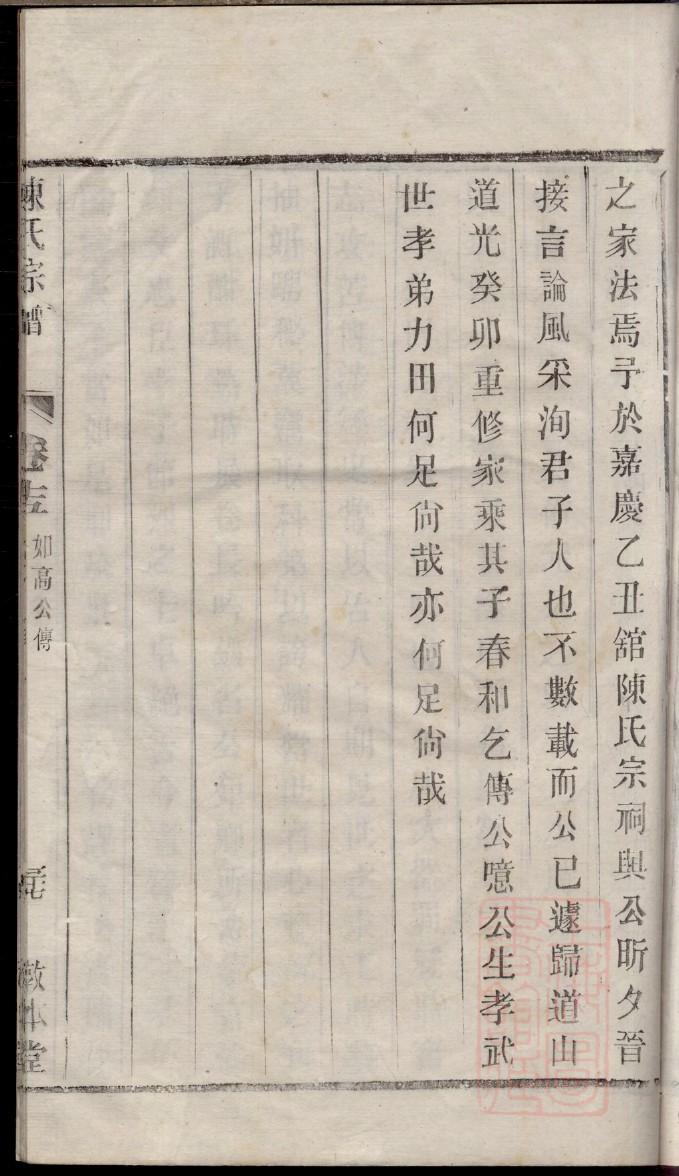 之家法焉予於嘉慶乙丑舘陳氏宗祠與公昕夕晉
接言論風采洵君子人也不數載而公已遽歸道山
道光癸卯重修家乘其子春和乞傳公噫公生孝武
世孝弟力田何足尙哉亦何足尙哉
陳氏宗譜
如高公傳
敬本堂